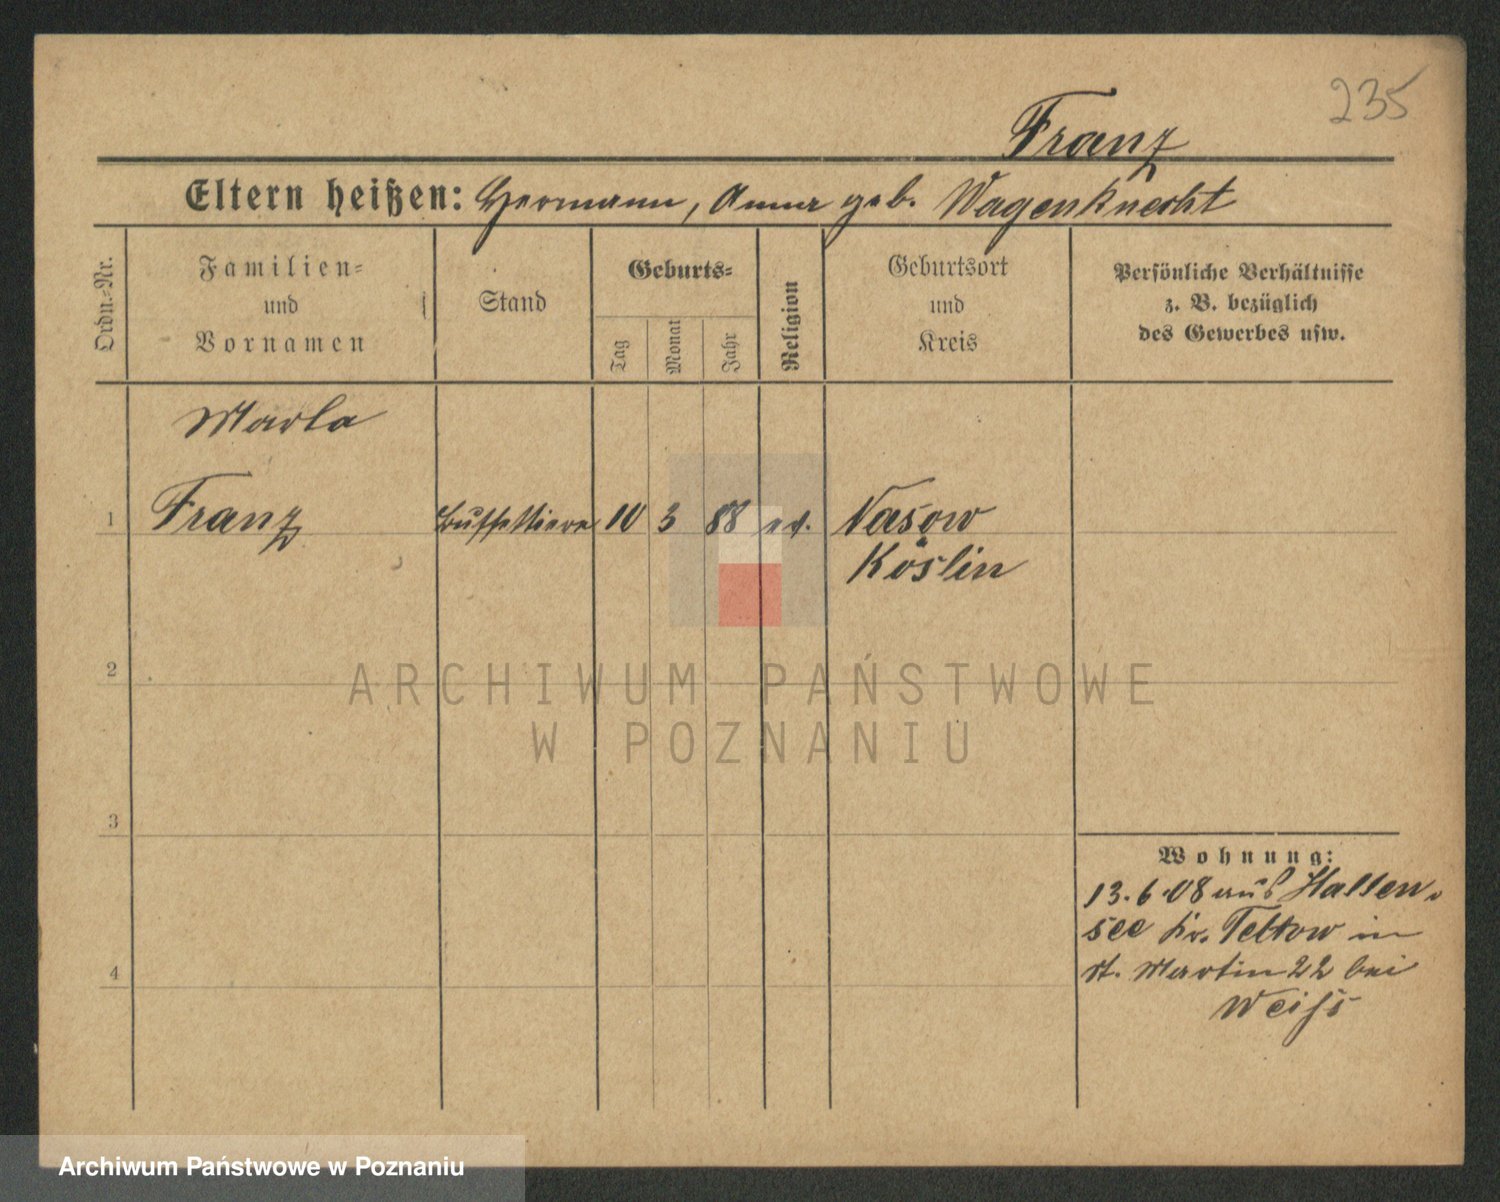 235
Franz
Eltern heißen: Hermann, Anna geb. Wagenknecht
Ordn.-Nr.
Familien-
und
Vornamen
Stand
Geburts-
Tag
Monat
Jahr
Religion
Geburtsort
und
Kreis
Persönliche Verhältnisse
z. B. bezüglich
des Gewerbes usw.
Marta
1 Franz Buffettiere 10 3 88 ev. Nasow
Köslin
2
ARCHIWUM PAŃSTWOWE
W POZNANIU
3
Wohnung:
13.6.08 aus Hallen-
see Kr. Teltow in
St. Martin 22 bei
Weiss
4
Archiwum Państwowe w Poznaniu